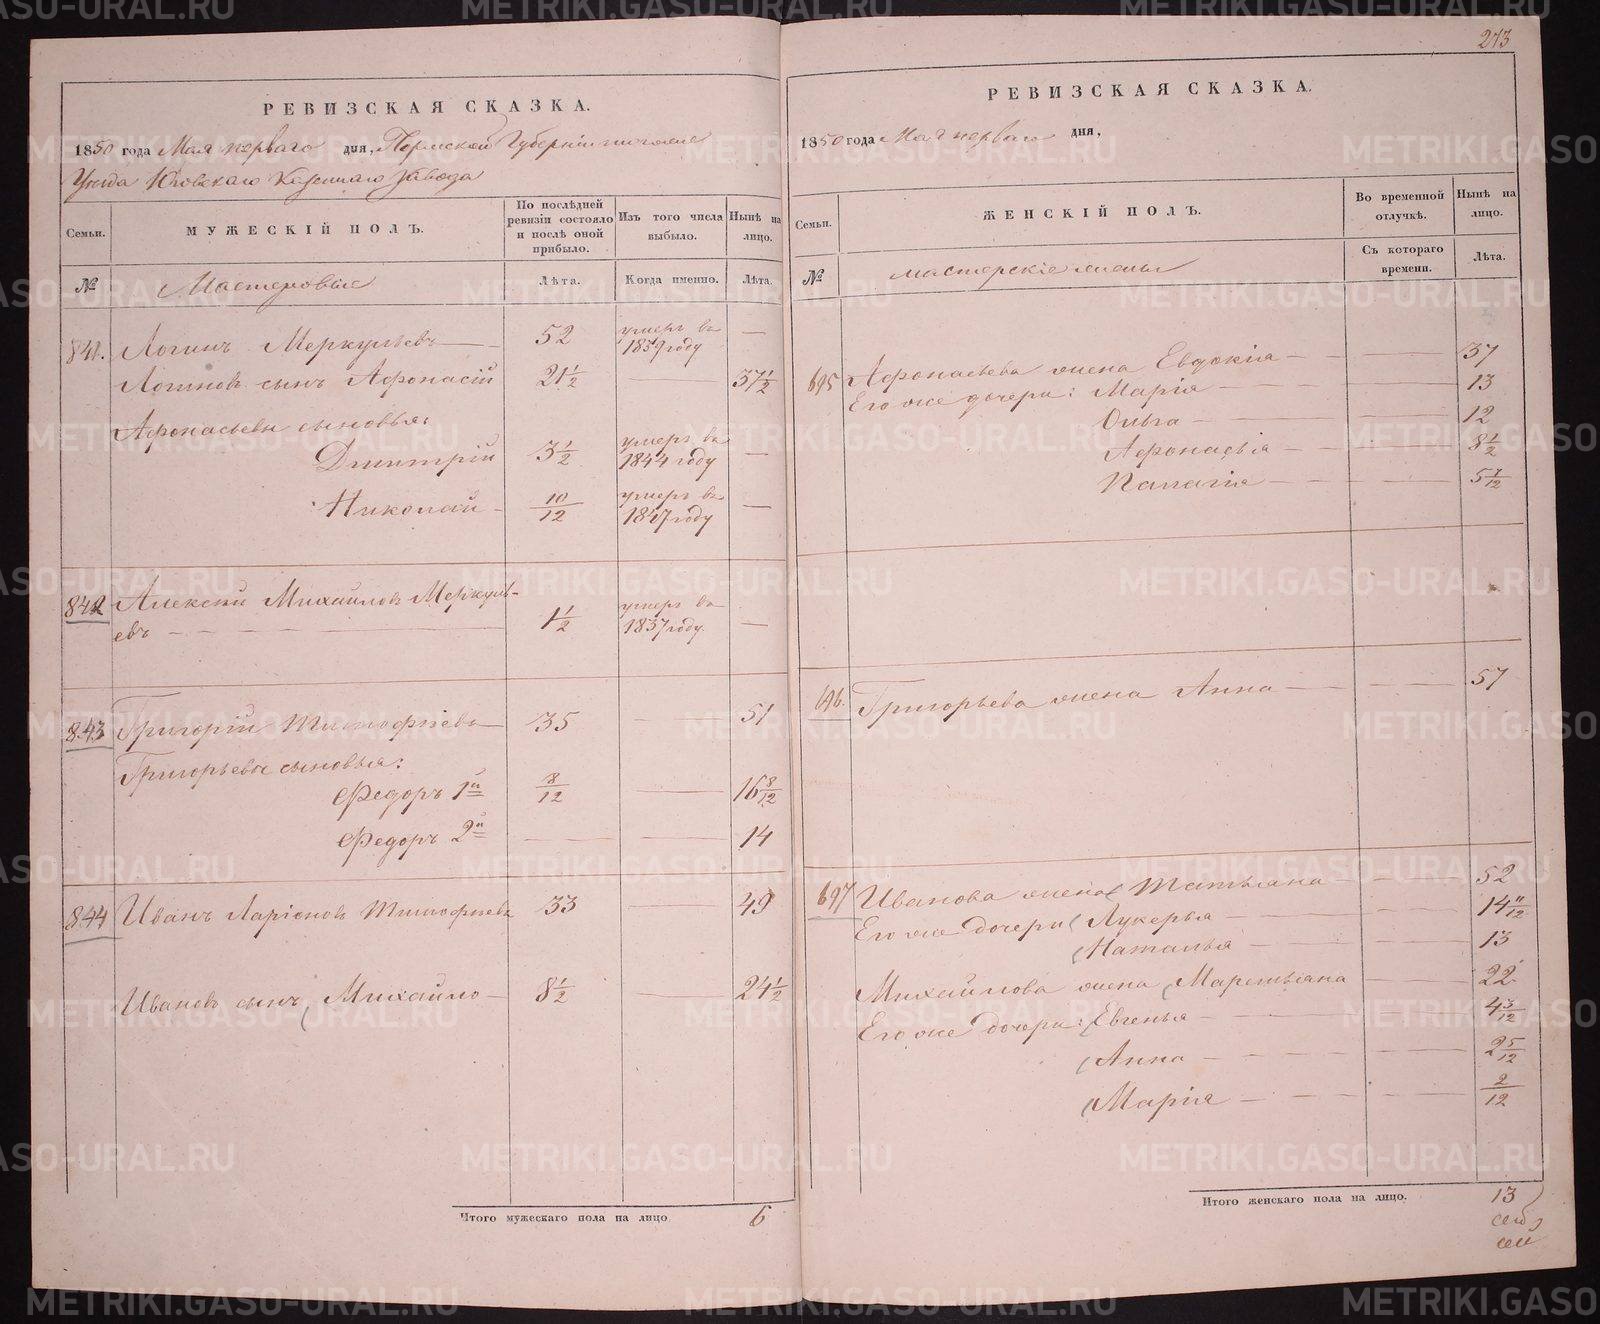 273
РЕВИЗСКАЯ СКАЗКА.
1850 года Мая перваго дня, Пермской Губерніи
Уезда Юговскаго Казеннаго завода
Семьи.
МУЖЕСКІЙ ПОЛЪ.
По послѣдней ревизіи состояло и послѣ оной прибыло.
Изъ того числа выбыло.
Нынѣ на лицо.
№
Мастеровые
Лѣта.
Когда именно.
Лѣта.
841. Логинъ Меркульевъ — 52 умеръ въ 1839 году —
Логиновъ сынъ Афонасій 21½ — 37½
Афонасьевы сыновья:
Дмитрій 3½ умеръ въ 1844 году —
Николай - 10/12 умеръ въ 1847 году —
842 Алексѣй Михайловъ Меркуль-
евъ — 1½ умеръ въ 1837 году. —
843 Григорій Тимофѣевъ — 35 — 51
Григорьевы сыновья:
Федоръ 1й 8/12 — 16 8/12
Федоръ 2й — — 14
844 Иванъ Ларіоновъ Тимофѣевъ 33 — 49
Ивановъ сынъ, Михайло — 8½ — 24½
Итого мужескаго пола на лицо 6
РЕВИЗСКАЯ СКАЗКА.
1850 года Мая перваго дня,
Семьи.
ЖЕНСКІЙ ПОЛЪ.
Во временной отлучкѣ.
Нынѣ на лицо.
№
мастерскіе жены
Съ котораго времени.
Лѣта.
695 Афонасьева жена Евдокія — 37
Его же дочери: Марія — 13
Ольга — 12
Афонасія — 8½
Палагія — 5 7/12
696. Григорьева жена Анна — 57
697 Иванова жена Татьяна — 52
Его же дочери Лукерья — 14 11/12
Наталья — 13
Михайлова жена Маремьяна — 22
Его же дочери: Евгенья — 4 3/12
Анна — 2 5/12
Марія — 2/12
Итого женскаго пола на лицо. 13